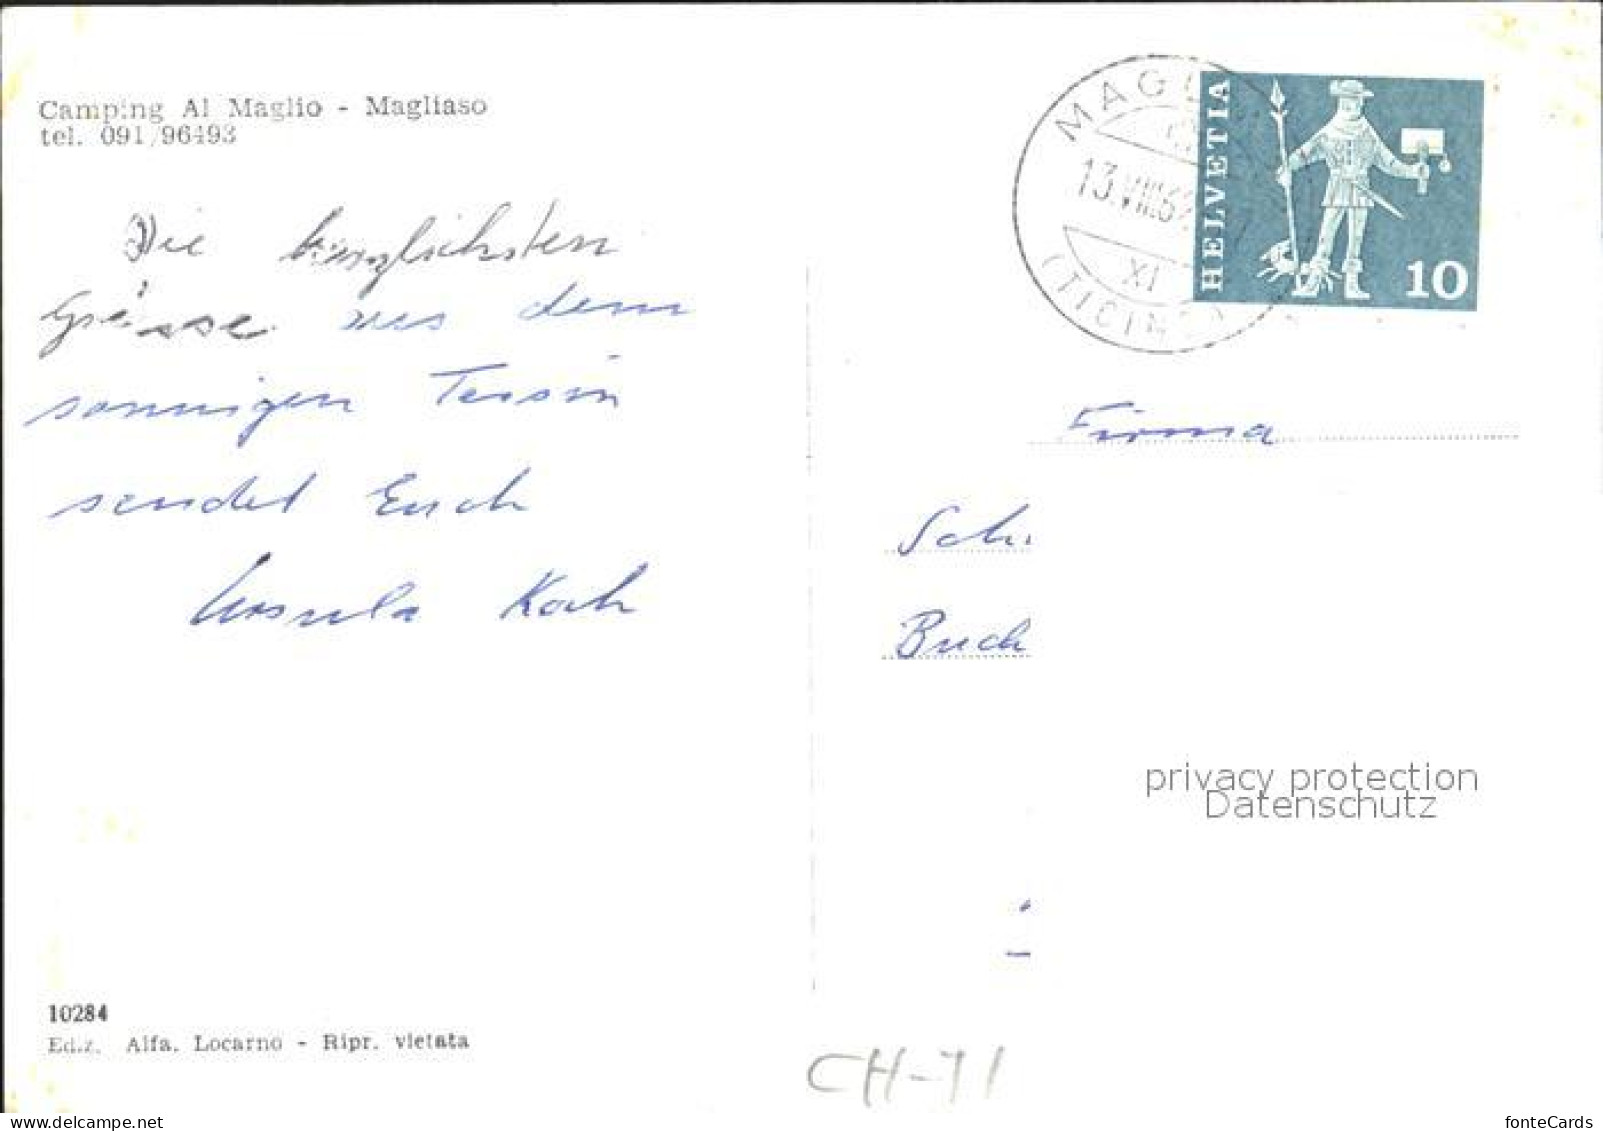 Camping Al Maglio - Magliaso
tel. 091/96493
Die herzlichsten
Grüsse aus dem
sonnigen Tessin
sendet Euch
Ursula Koch
10284
Ediz. Alfa. Locarno - Ripr. vietata
13.VIII.6
XI
(TICINO)
HELVETIA
10
Firma
Sch
Buch
privacy protection
Datenschutz
CH-71
www.delcampe.net
fonteCards